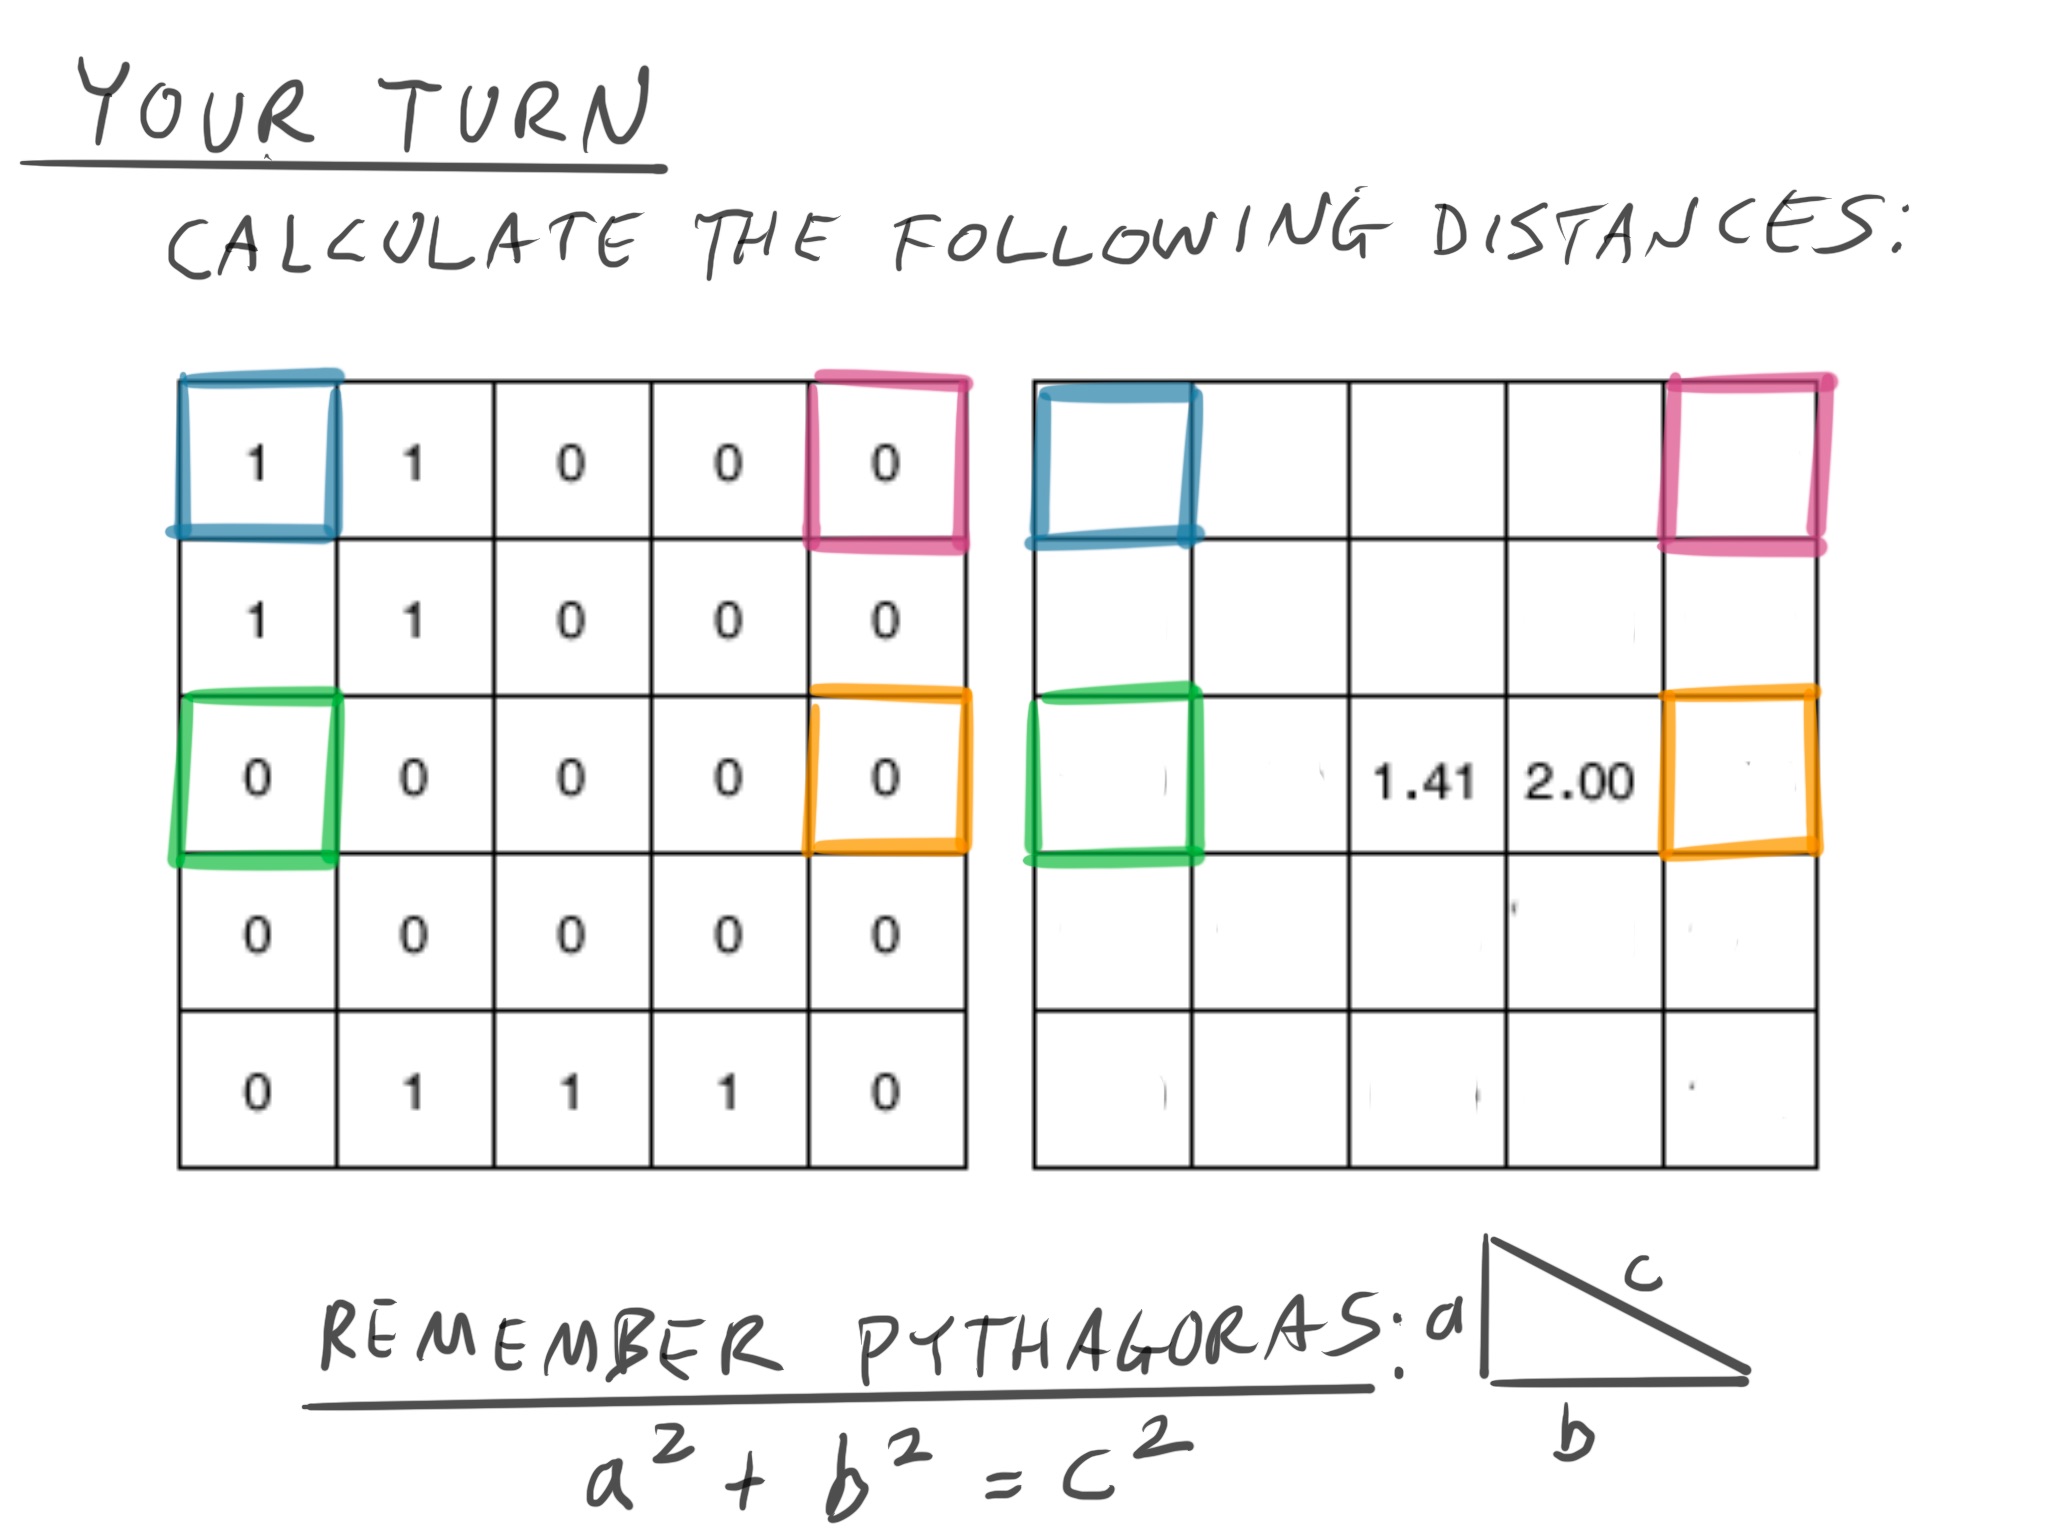 YOUR TURN
CALCULATE THE FOLLOWING DISTANCES:
1 1 0 0 0
1 1 0 0 0
0 0 0 0 0 1.41 2.00
0 0 0 0 0
0 1 1 1 0
REMEMBER PYTHAGORAS: a c
b
a² + b² = c²